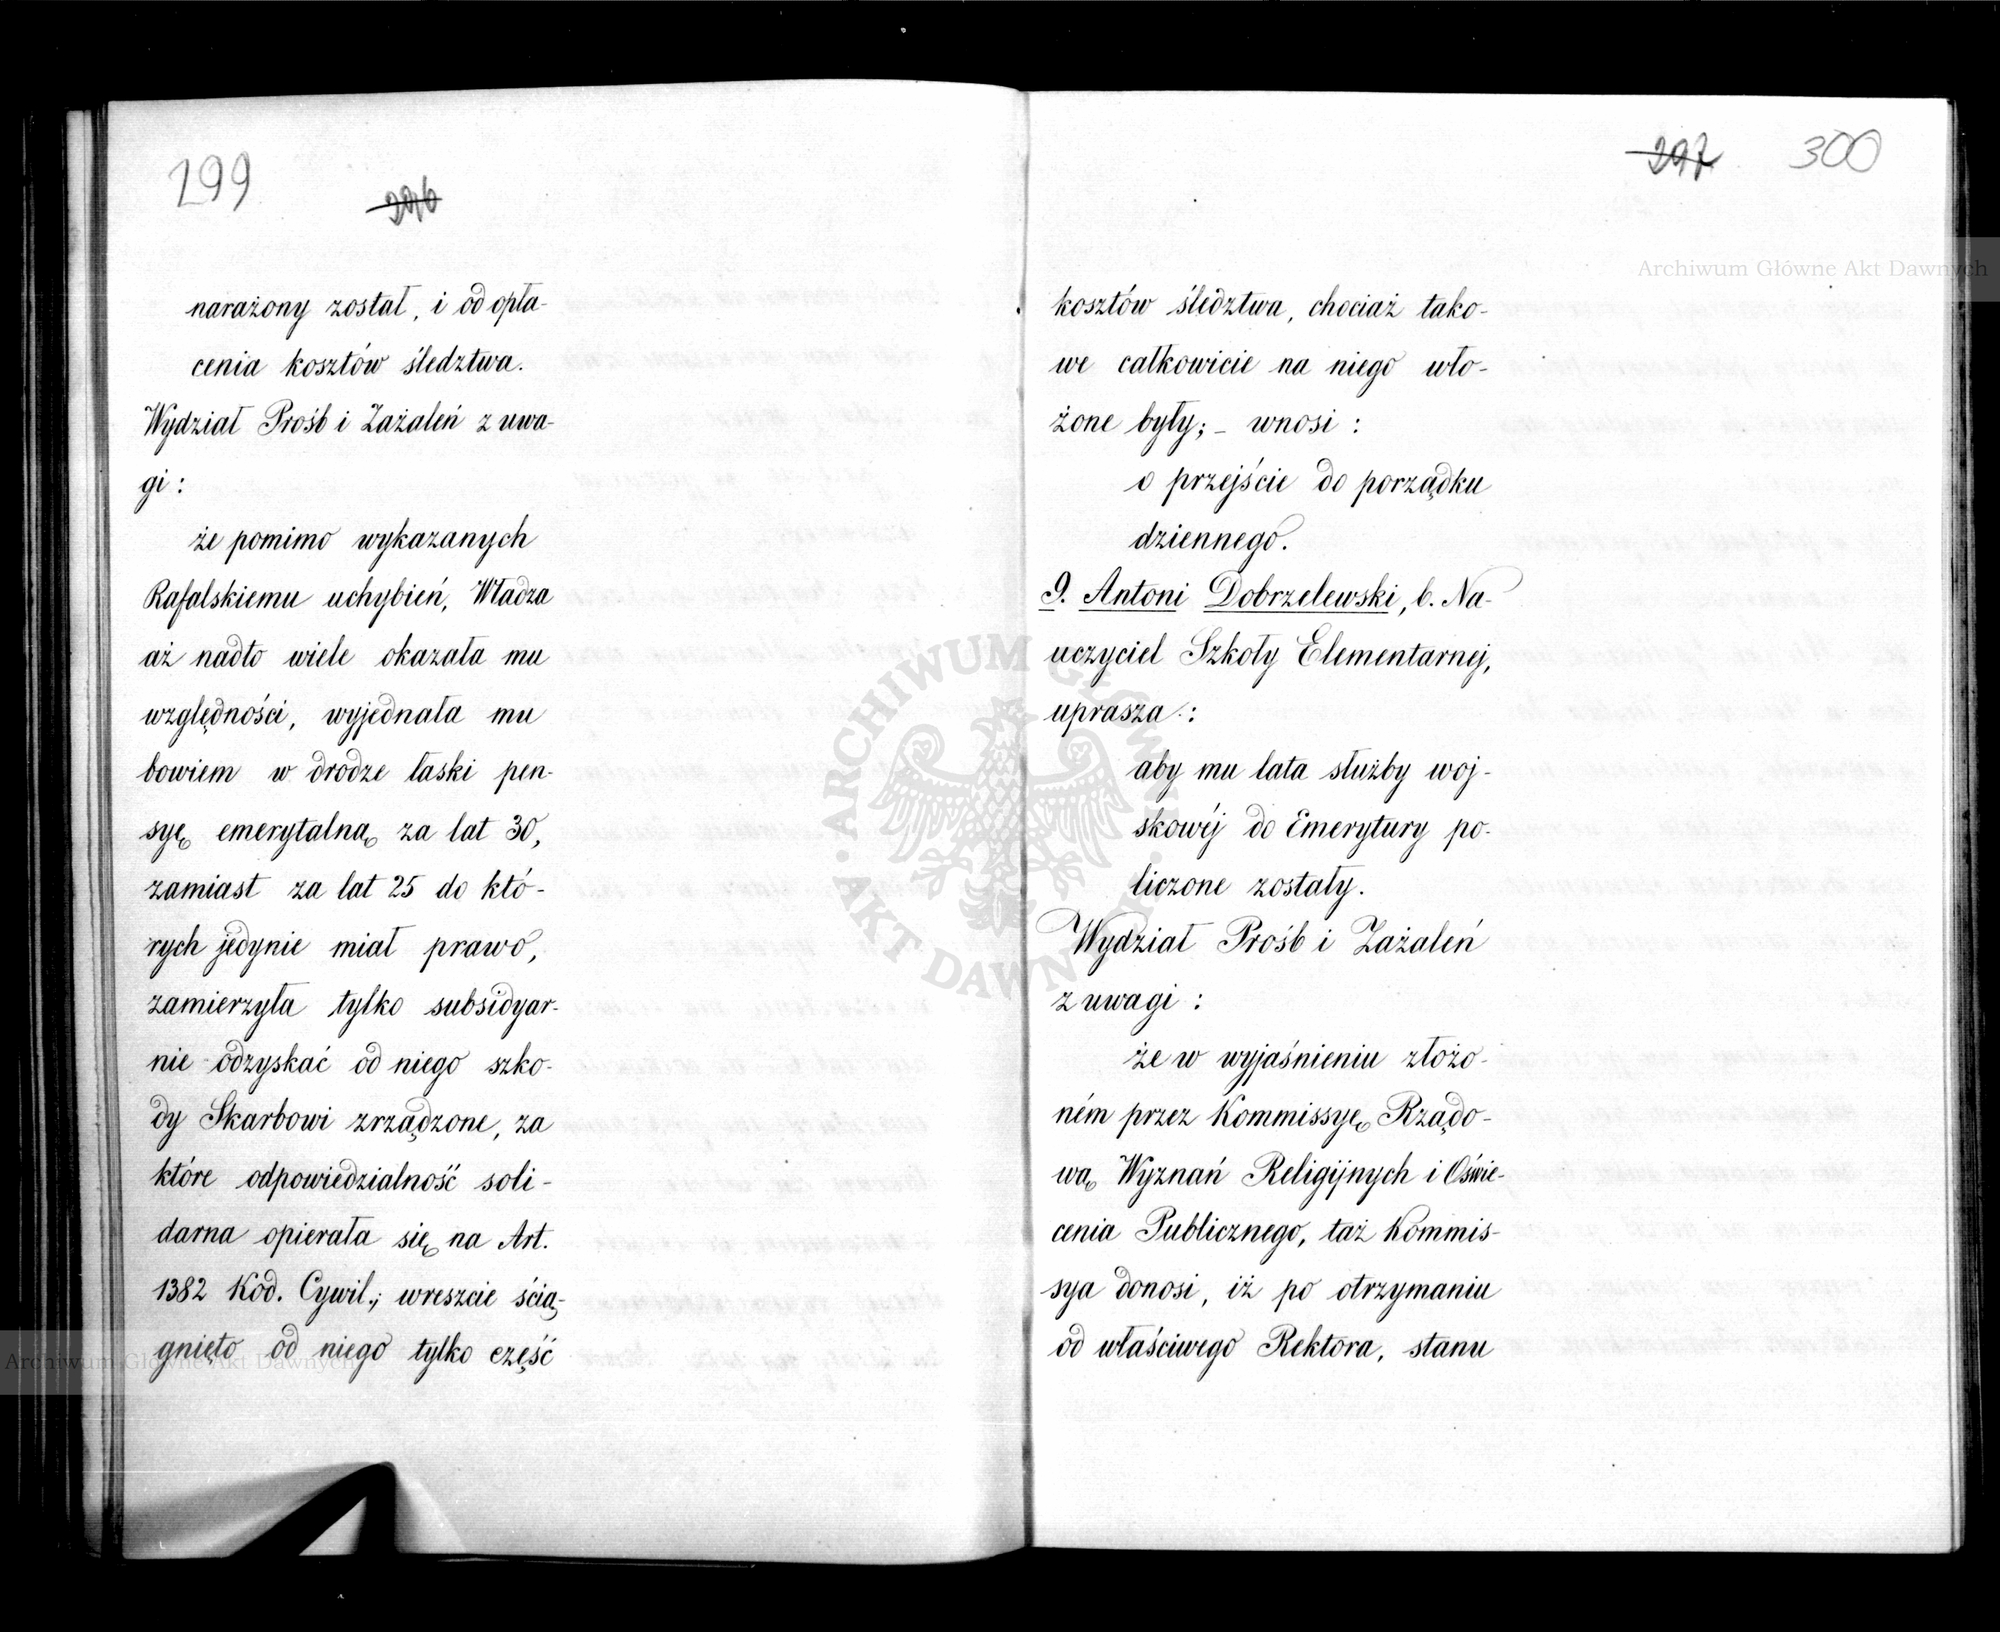 299
296
narażony został, i od opła-
cenia kosztów śledztwa.
Wydział Prośb i Zażaleń z uwa-
gi:
że pomimo wykazanych
Rafalskiemu uchybień, Władza
aż nadto wiele okazała mu
względności, wyjednała mu
bowiem w drodze łaski pen-
syę emerytalną za lat 30,
zamiast za lat 25 do któ-
rych jedynie miał prawo,
zamierzyła tylko subsidyar-
nie odzyskać od niego szko-
dy Skarbowi zrządzone, za
które odpowiedzialność soli-
darna opierała się na Art.
1382 Kod. Cywil.; wreszcie ścią-
gnięto od niego tylko część
297 300
kosztów śledztwa, chociaż tako-
we całkowicie na niego wło-
żone były; – wnosi:
o przejście do porządku
dziennego.
9. Antoni Dobrzelewski, b. Na-
uczyciel Szkoły Elementarnej,
uprasza:
aby mu lata służby woj-
skowéj do Emerytury po-
liczone zostały.
Wydział Prośb i Zażaleń
z uwagi:
że w wyjaśnieniu złożo-
ném przez Kommissyę Rządo-
wą Wyznań Religijnych i Oświe-
cenia Publicznego, taż Kommis-
sya donosi, iż po otrzymaniu
od właściwego Rektora, stanu
Archiwum Główne Akt Dawnych
Archiwum Główne Akt Dawnych
ARCHIWUM GŁÓWNE AKT DAWNYCH